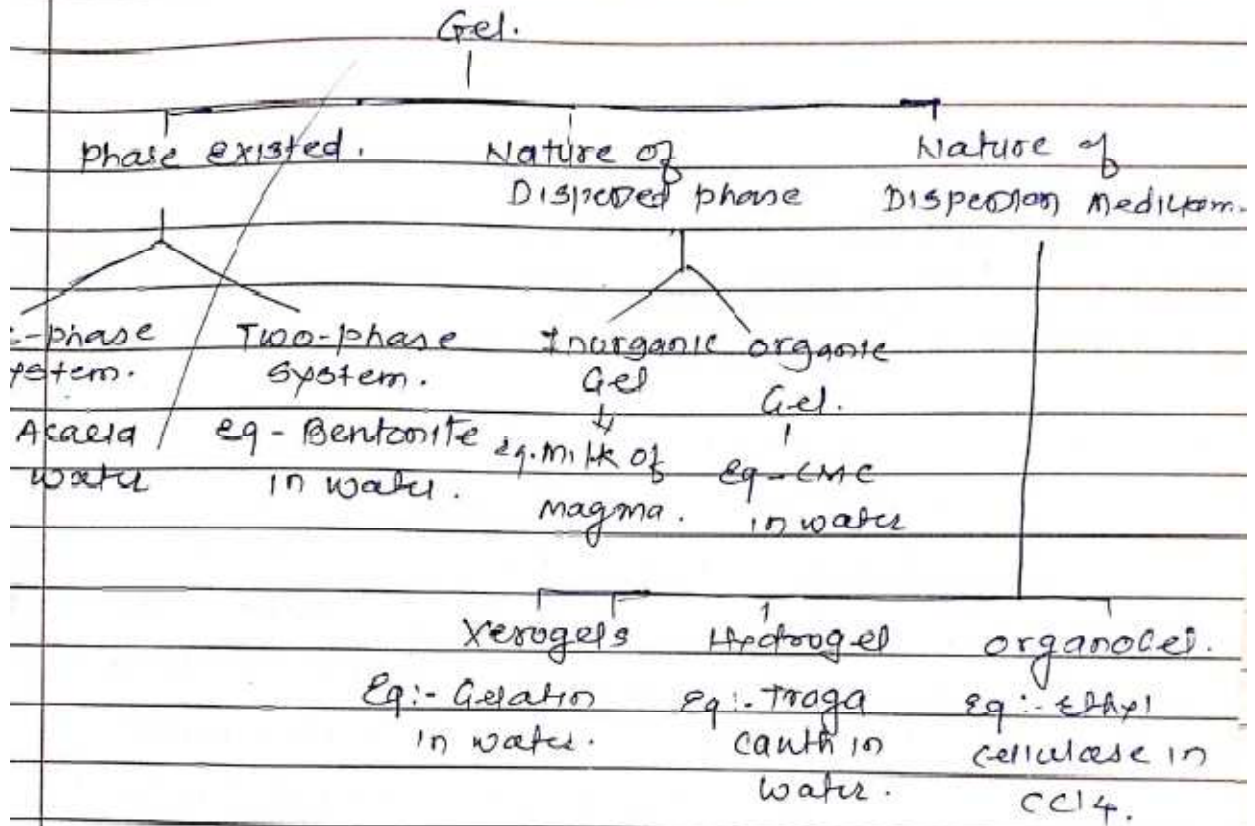 Gel.
phase existed.
Nature of
Dispersed phase
Nature of
Dispersion Medium.
-phase
ystem.
Acacia
water
Two-phase
System.
eg - Bentonite
in water.
Inorganic
Gel
eg. Milk of
magma.
organic
Gel.
Eg - CMC
in water
Xerogels
Eg:- Gelatin
in water.
Hydrogel
Eg:- Traga
canth in
water.
organoGel.
Eg:- Ethyl
cellulase in
CCl4.